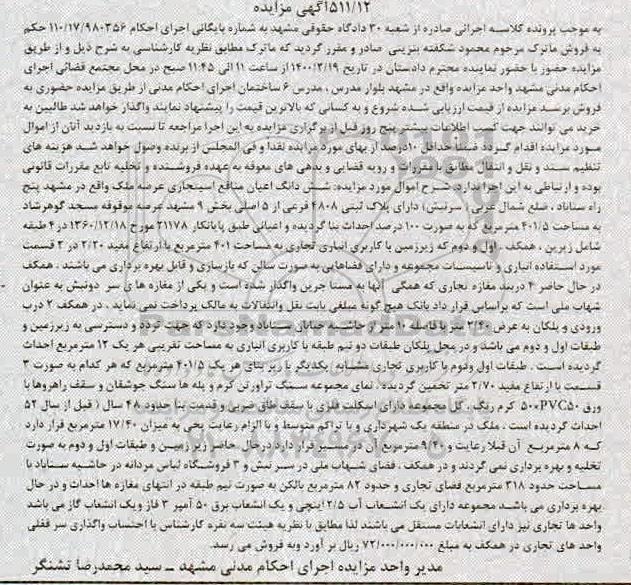 ۵۱۱/۱۲آگهی مزایده
به موجب پرونده کلاسه اجرائی صادره از شعبه ۳۰ دادگاه حقوقی مشهد به شماره بایگانی اجرای احکام ۱۱۰/۱۷/۹۸۰۳۵۶ حکم
به فروش ماترک مرحوم محمود شکفته بنزینی صادر و مقرر گردید که ماترک مطابق نظریه کارشناسی به شرح ذیل و از طریق
مزایده حضور با حضور نماینده محترم دادستان در تاریخ ۱۴۰۰/۲/۱۹ از ساعت ۱۱ الی ۱۱:۴۵ صبح در محل مجتمع قضائی اجرای
احکام مدنی مشهد واحد مزایده واقع در مشهد بلوار مدرس ، مدرس ۶ ساختمان اجرای احکام مدنی از طریق مزایده حضوری به
فروش برسد مزایده از قیمت ارزیابی شده شروع و به کسانی که بالاترین قیمت را پیشنهاد نمایند واگذار خواهد شد طالبین به
خرید می توانند جهت کسب اطلاعات بیشتر پنج روز قبل از برگزاری مزایده به این اجرا مراجعه تا نسبت به بازدید آنان از اموال
مورد مزایده اقدام گردد ضمناً حداقل ۱۰درصد از بهای مورد مزایده نقدا و فی المجلس از برنده وصول خواهد شد هزینه های
تنظیم سند و نقل و انتقال مطابق با مقررات و رویه قضایی و بدهی های معوقه به عهده فروشنده و تخلیه تابع مقررات قانونی
بوده و ارتباطی به این اجرا ندارد. شرح اموال مورد مزایده: شش دانگ اعیان منافع استیجاری عرصه ملک واقع در مشهد پنج
راه سناباد ، ضلع شمال غربی ( سرنبش) دارای پلاک ثبتی ۴۸۰۸ فرعی از ۵ اصلی بخش ۹ مشهد عرصه موقوفه مسجد گوهرشاد
به مساحت ۴۰۱/۵ مترمربع که به صورت ۱۰۰ درصد احداث بنا گردیده و اعیانی طبق پایانکار ۲۱۱۷۸ مورخ ۱۳۶۰/۱۲/۱۸ در ۴ طبقه
شامل زیرین ، همکف ، اول و دوم که زیرزمین با کاربری انباری تجاری به مساحت ۴۰۱ مترمربع با ارتفاع مفید ۲/۲۰ در ۲ قسمت
مورد استفاده انباری و تاسیسات مجموعه و دارای فضاهایی به صورت سالن که بازسازی و قابل بهره برداری می باشند ، همکف
در حال حاضر ۴ دربند مغازه تجاری که همگی آنها به مستا جرین واگذار شده است و یکی از مغازه های سر دونبش به عنوان
شهاب ملی است که براساس قرار داد بانک هیچ گونه مبلغی بابت نقل وانتقالات به مالک پرداخت نمی نماید ، در همکف ۲ درب
ورودی و پلکان به عرض ۲/۴۰ متر با فاصله ۱۰ متر از حاشیه خیابان سناباد وجود دارد که جهت تردد و دسترسی به زیرزمین و
طبقات اول و دوم می باشد و در محل پلکان طبقات دو نیم طبقه با کاربری انباری به مساحت تقریبی هر یک ۱۲ مترمربع احداث
گردیده است . طبقات اول ودوم با کاربری تجاری مشابه یکدیگر با زیر بنای هر یک ۴۰۱/۵ مترمربع که هر کدام به صورت ۳
قسمت با ارتفاع مفید ۲/۷۰ متر تخمین گردیده . نمای مجموعه سنگ تراورتن کرم و پله ها سنگ جوشقان و سقف راهروها با
ورق ۵۰۰PVC۵۰ کرم رنگ . کل مجموعه دارای اسکلت فلزی با سقف طاق ضربی و قدمت بنا حدود ۴۸ سال ( قبل از سال ۵۲
احداث گردیده است . ملک در منطقه یک شهرداری و با تراکم متوسط و با الزام رعایت پخی به میزان ۱۷/۴۰ مترمربع قرار دارد
که ۸ مترمربع آن قبلا رعایت و ۹/۴۰ مترمربع آن در مسیر قرار دارد در حال حاضر زیرزمین و طبقات اول و دوم به صورت
تخلیه و بهره برداری نمی گردند و در همکف ، فضای شهاب ملی در سر نبش و ۳ فروشگاه لباس مردانه در حاشیه سناباد با
مساحت حدود ۳۱۸ مترمربع فضای تجاری و حدود ۸۲ مترمربع بالکن به صورت نیم طبقه در انتهای مغازه ها احداث و در حال
بهره برداری می باشد مجموعه دارای یک انشعاب آب ۲/۵ اینچی و یک انشعاب برق ۵۰ آمپر ۳ فاز ویک انشعاب گاز می باشد
واحد ها تجاری نیز دارای انشعابات مستقل می باشند لذا مطابق با نظریه هیئت سه نفره کارشناس با احتساب واگذاری سر قفلی
واحد های تجاری در همکف به مبلغ ۷۲/۰۰۰/۰۰۰/۰۰۰ ریال بر آورد وبه فروش می رسد.
مدیر واحد مزایده اجرای احکام مدنی مشهد ــ سید محمدرضا تشنگر